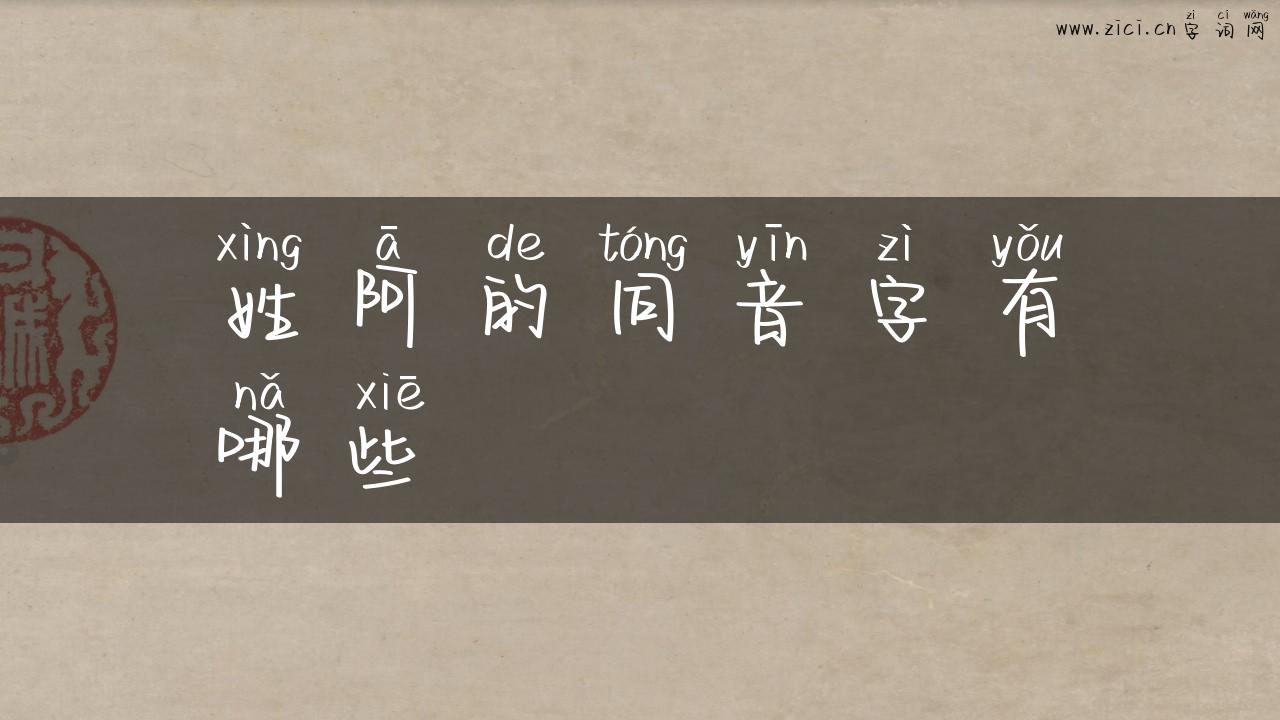 www.zici.cn
zì cí wǎng
字词网
xìng ā de tóng yīn zì yǒu
姓阿的同音字有
nǎ xiē
哪些